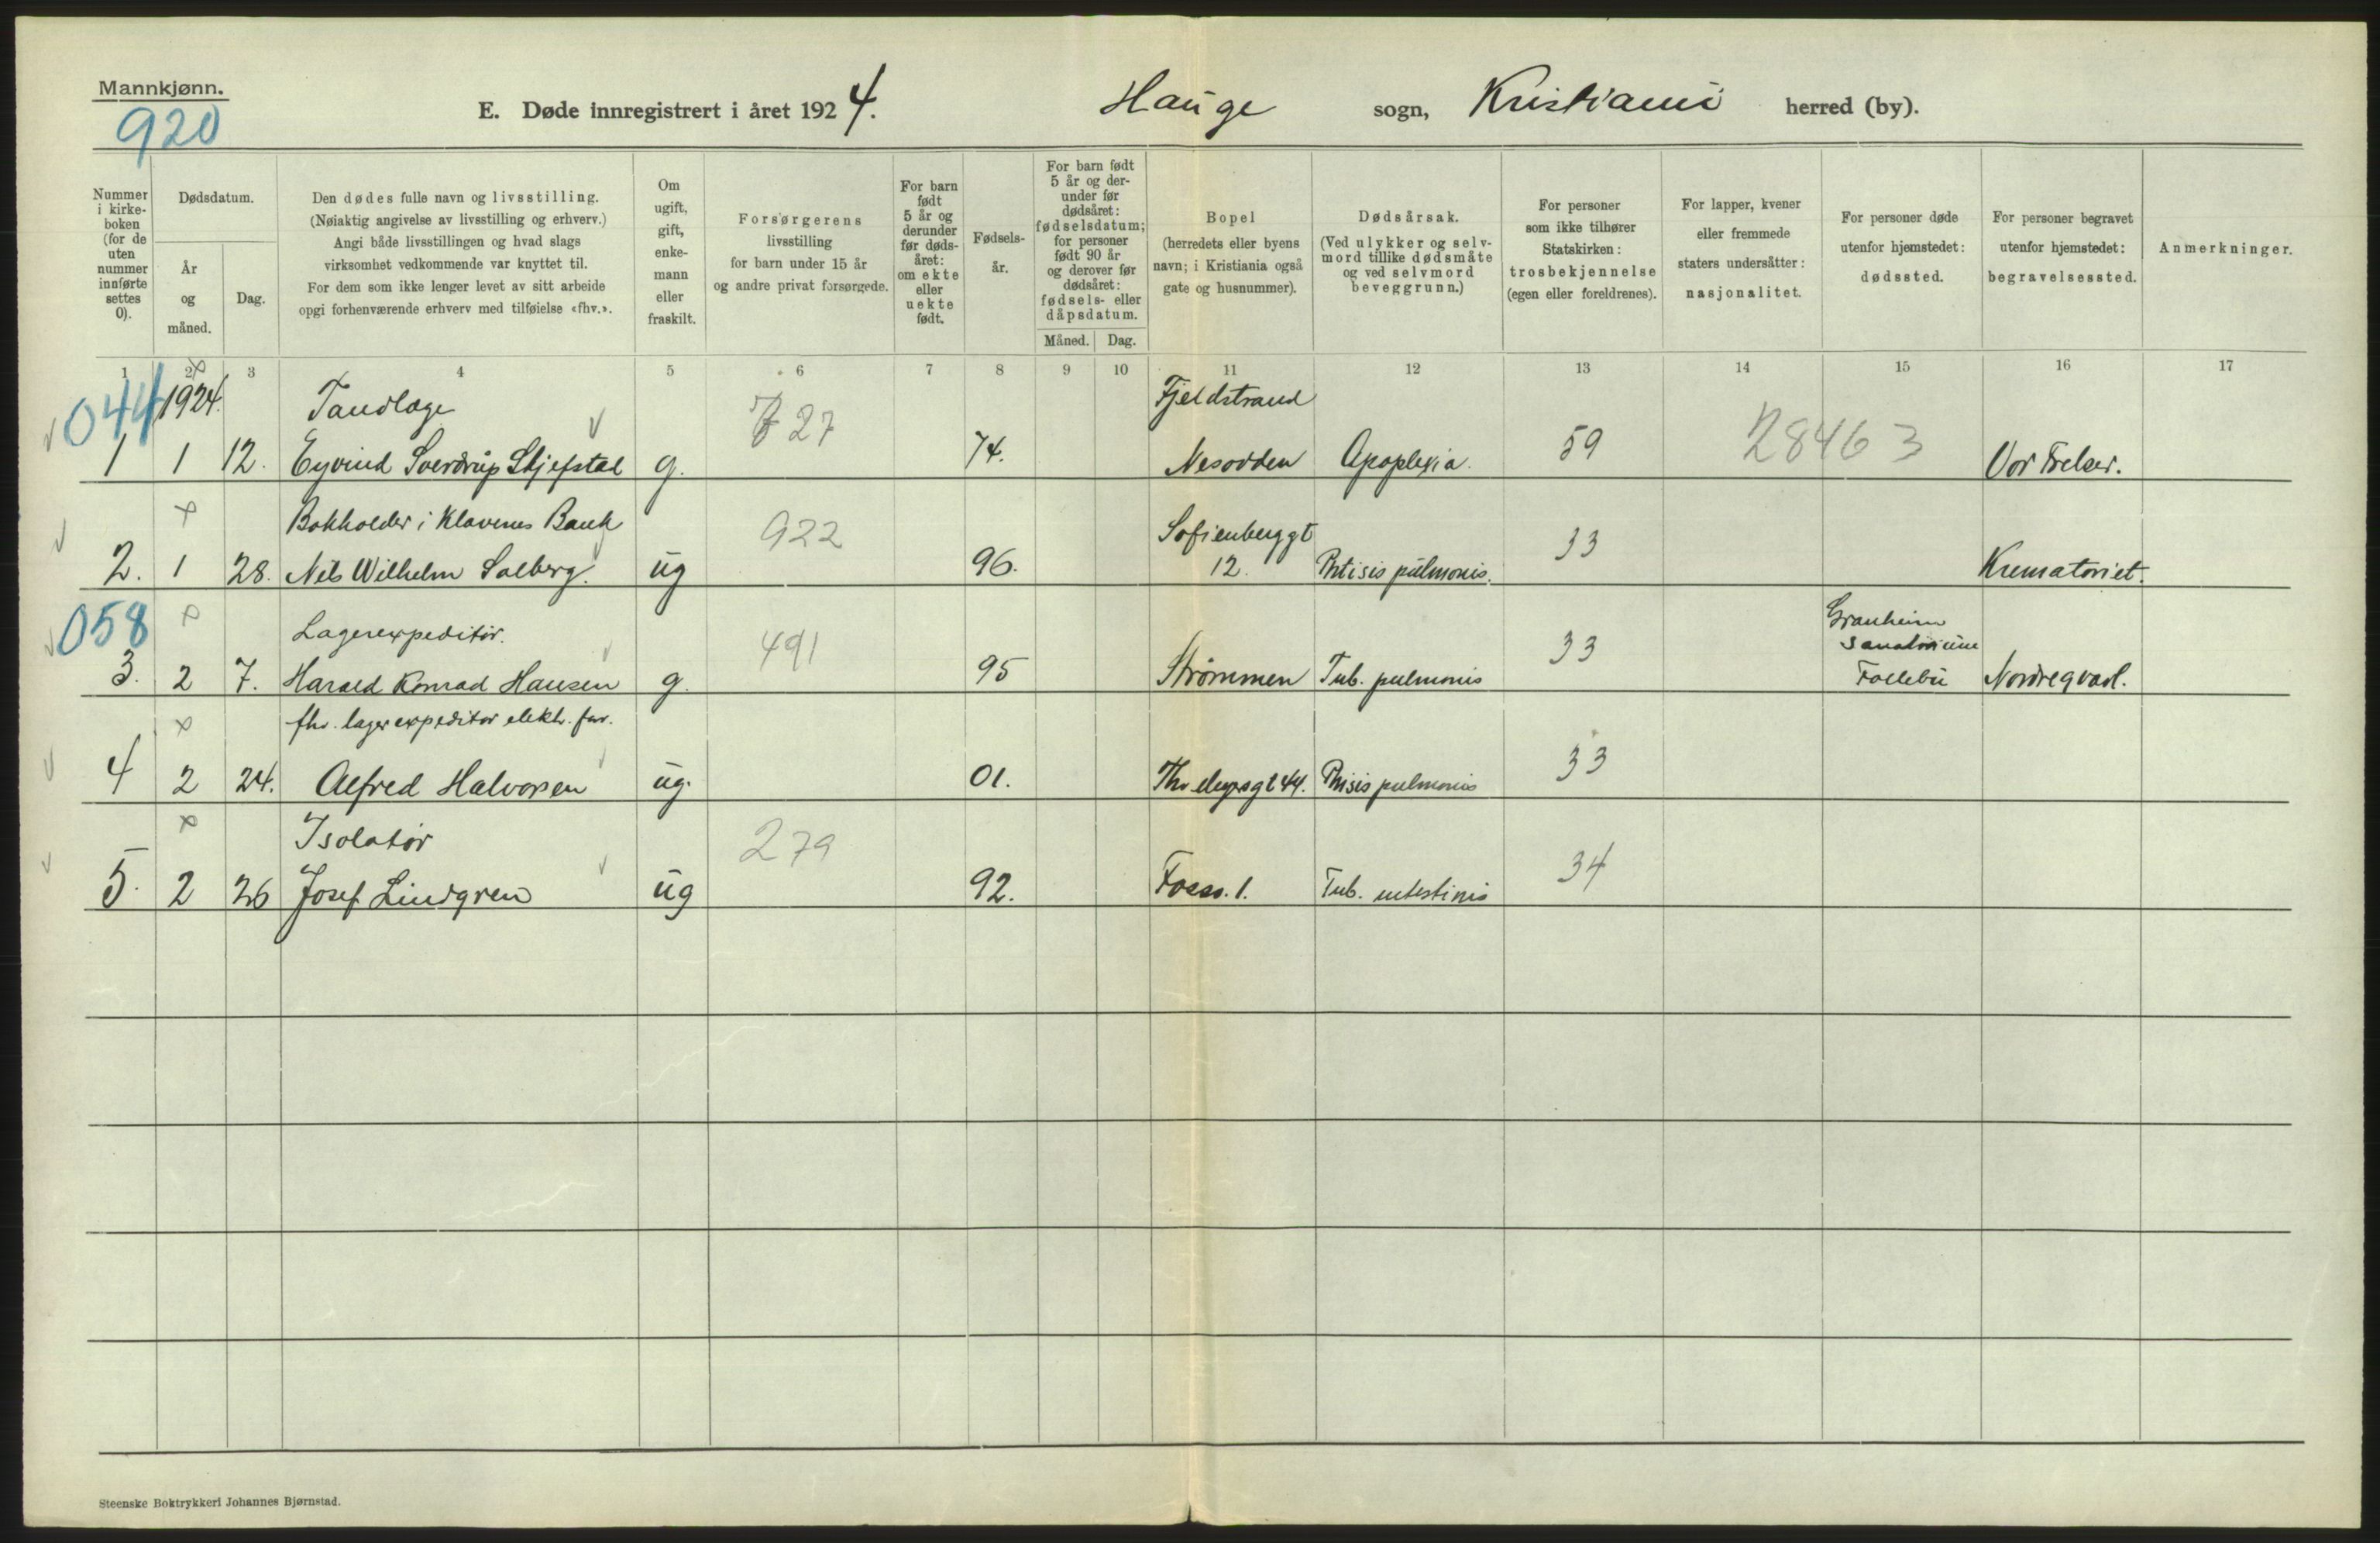 Mannkjønn.
920
E. Døde innregistrert i året 1924.
Hauge sogn, Kristiania herred (by).
Nummer i kirke- boken (for de uten nummer innførte settes 0).
Dødsdatum.
År og måned.
Dag.
Den dødes fulle navn og livsstilling.
(Nøiaktig angivelse av livsstilling og erhverv.)
Angi både livsstillingen og hvad slags
virksomhet vedkommende var knyttet til.
For dem som ikke lenger levet av sitt arbeide
opgi forhenværende erhverv med tilføielse «fhv.».
Om ugift, gift, enke- mann eller fraskilt.
Forsørgerens
livsstilling
for barn under 15 år
og andre privat forsørgede.
For barn født 5 år og derunder før døds- året: om ekte eller uekte født.
Fødsels- år.
For barn født 5 år og der- under før dødsåret: fødselsdatum; for personer født 90 år og derover før dødsåret: fødsels- eller dåpsdatum.
Måned. Dag.
Bopel
(herredets eller byens
navn; i Kristiania også
gate og husnummer).
Dødsårsak.
(Ved ulykker og selv-
mord tillike dødsmåte
og ved selvmord
beveggrunn.)
For personer
som ikke tilhører
Statskirken:
trosbekjennelse
(egen eller foreldrenes).
For lapper, kvener
eller fremmede
staters undersåtter:
nasjonalitet.
For personer døde
utenfor hjemstedet:
dødssted.
For personer begravet
utenfor hjemstedet:
begravelsessted.
Anmerkninger.
1 2 3 4 5 6 7 8 9 10 11 12 13 14 15 16 17
044 1924. Tandlæge 727 Fjeldstrand
1 1 12. Eyvind Sverdrup Skjefstad g. 74. Nesodden Apoplexia. 59 28463 Vor Frelser.
Bokholder i Klavenes Bank 922 Sofienberggt
2. 1 28. Nils Wilhelm Solberg. ug 96. 12. Phtisis pulmonis. 33 Krematoriet.
058 Lagerexpeditør. 491 Granheim
sanatorium
3. 2 7. Harald Konrad Hansen g. 95 Strømmen Tub. pulmonis 33 Follebu Nordre gravl.
fhv. lagerexpeditør elektr. forr.
4 2 24. Alfred Halvorsen ug. 01. Thv. Meyersgt 44. Phisis pulmonis 33
Isolatør 279
5. 2 26 Josef Lindgren ug 92. Fossv. 1. Tub. intestinis 34
Steenske Boktrykkeri Johannes Bjørnstad.